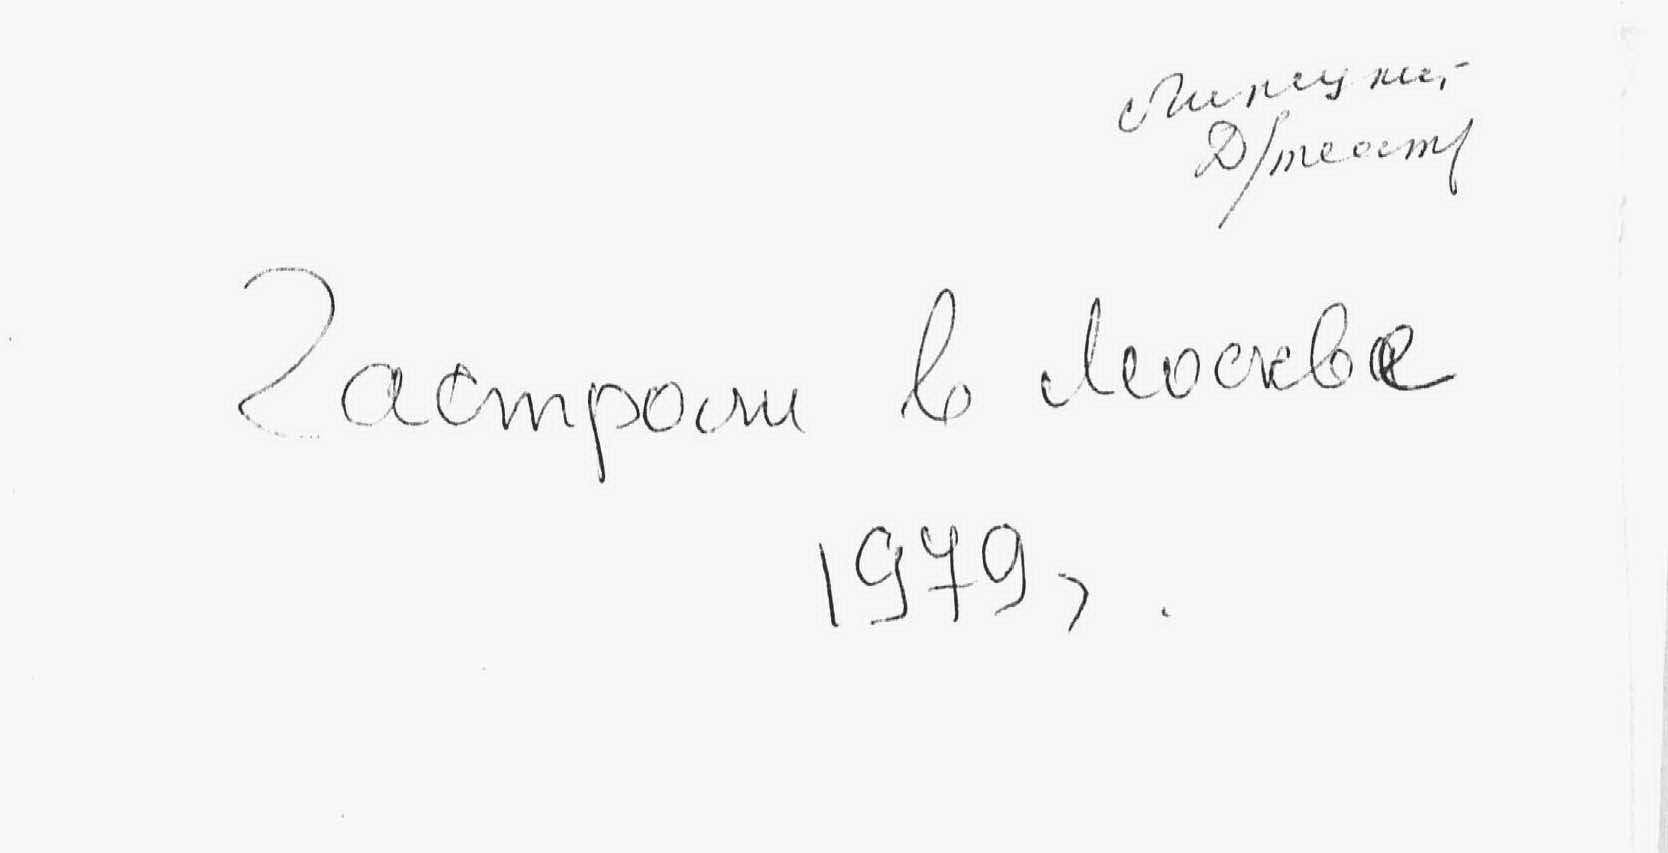 Липецкий
Д/театр
Гастроли в Москве
1979 г.